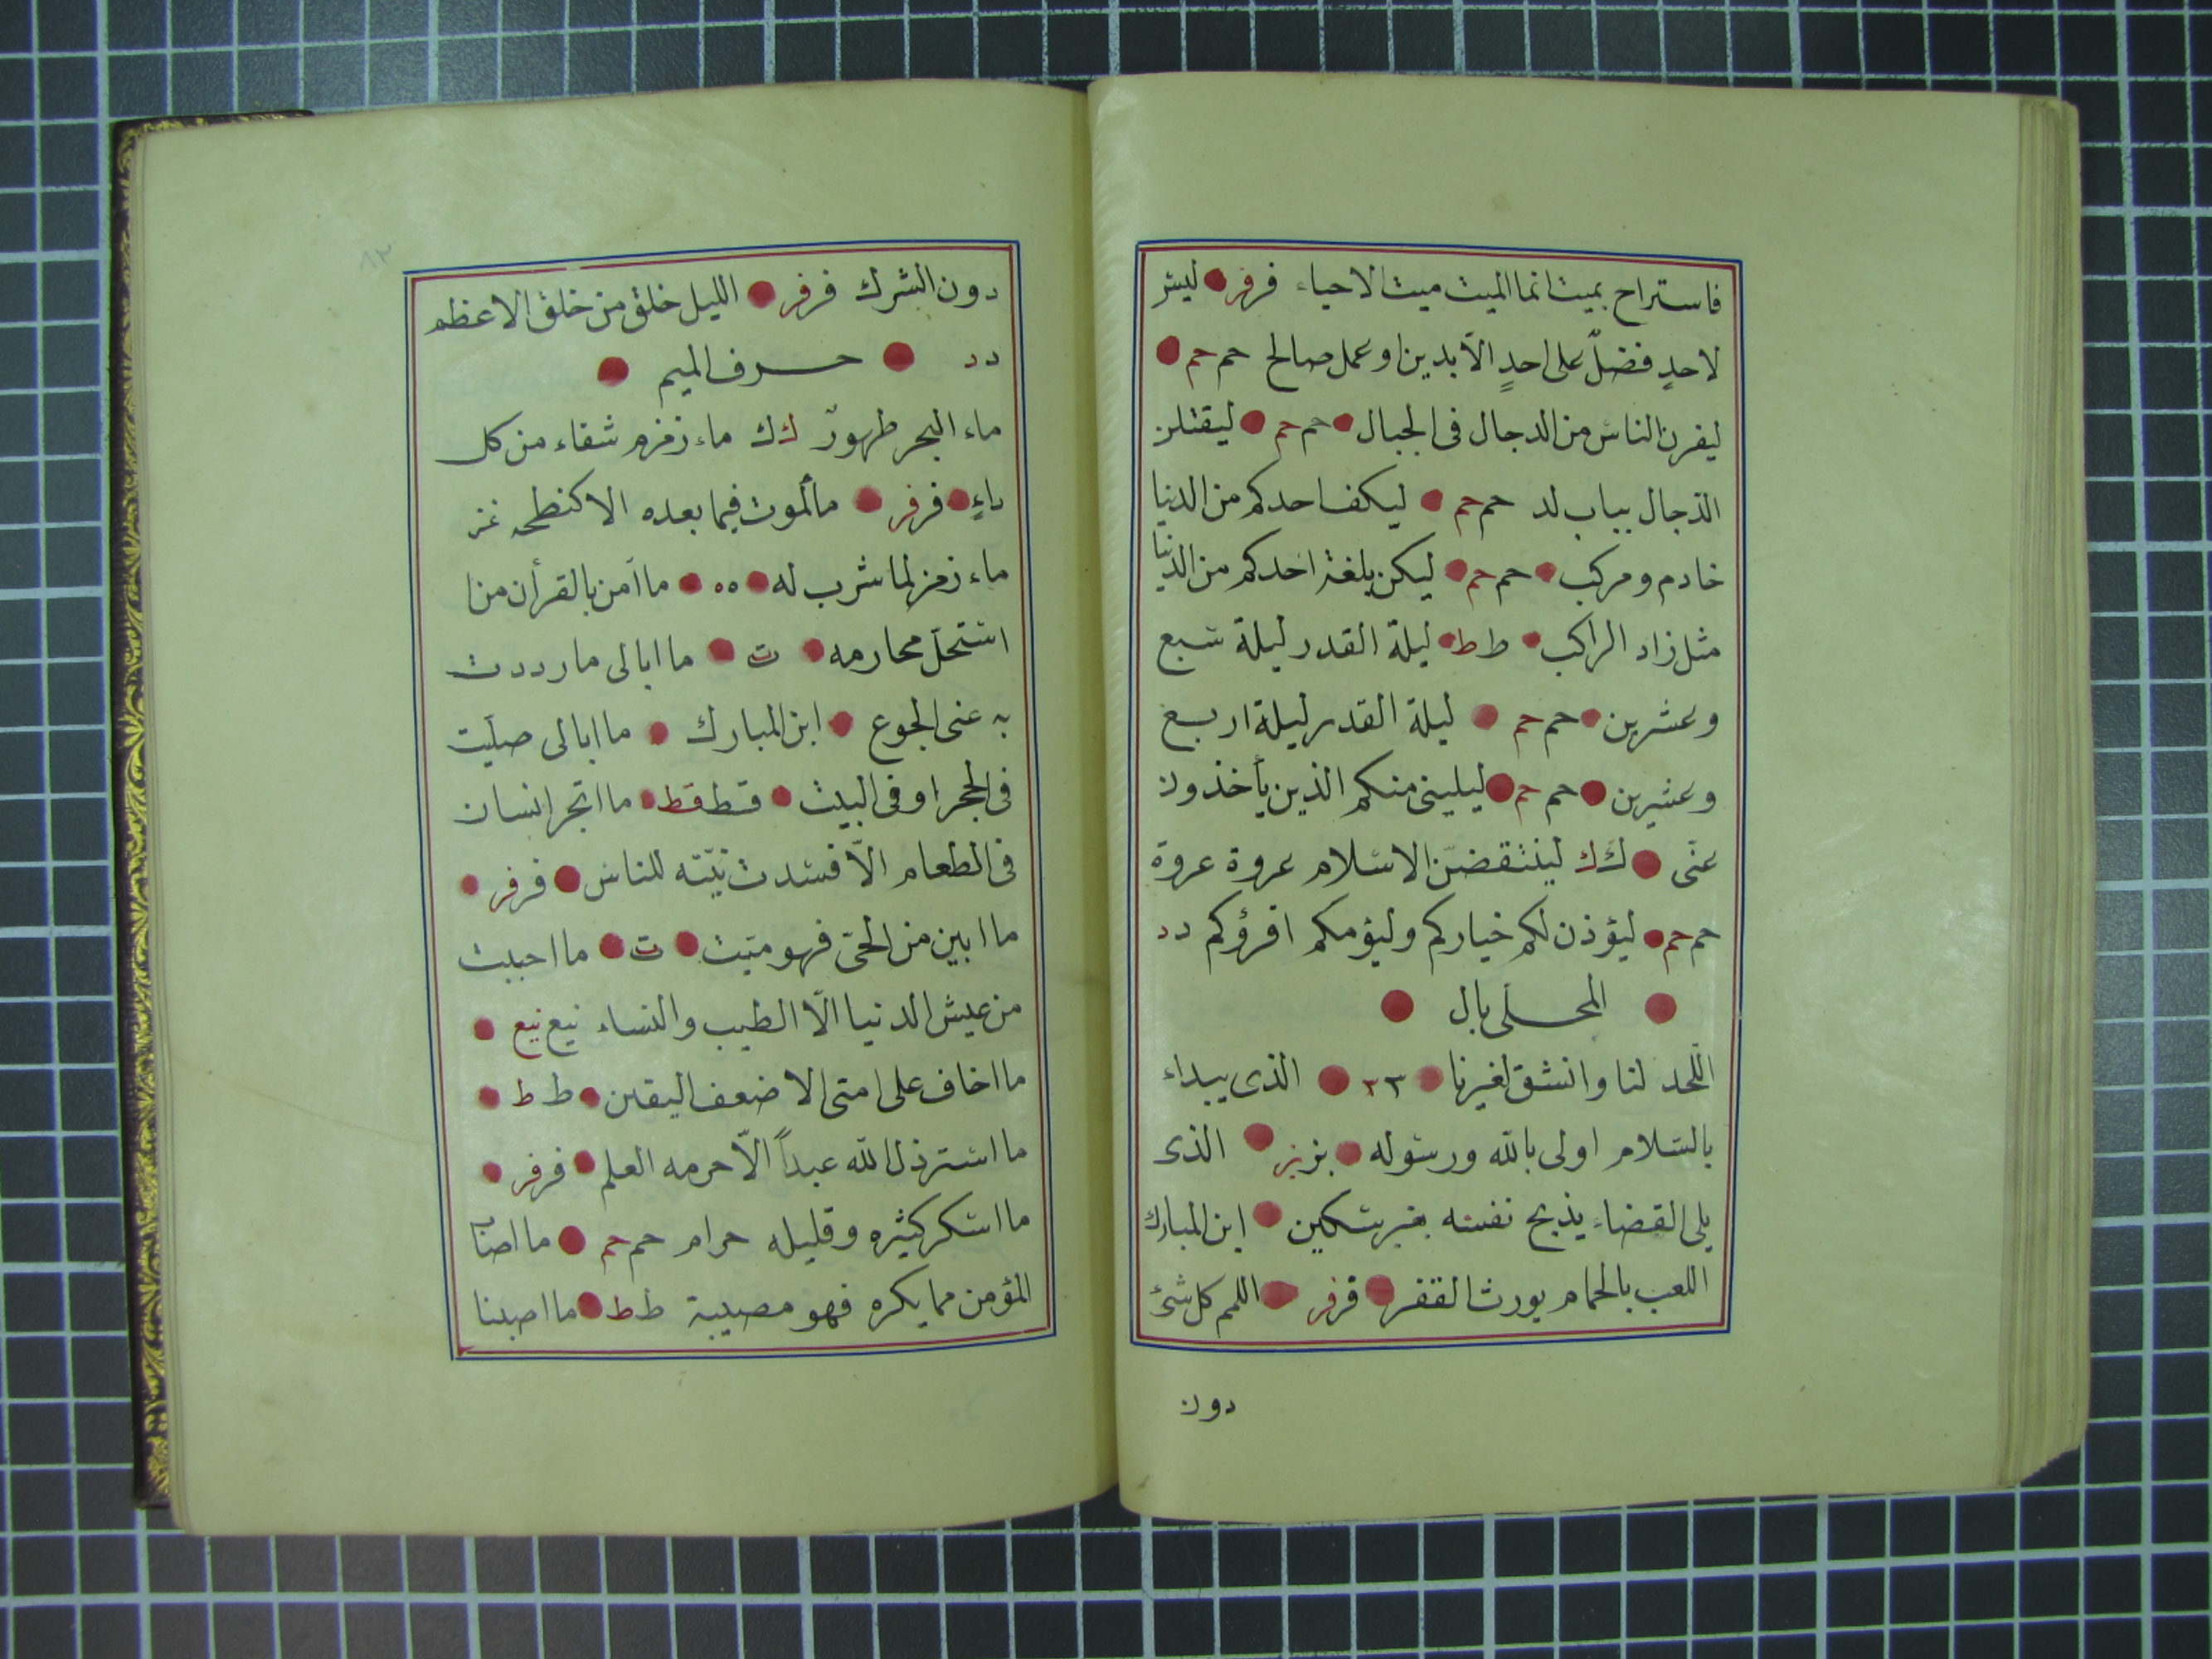 فاستراح بميت انما الميت ميت الاحياء فر فر ليس
لاحدٍ فضلٌ على احدٍ الّا بدين او عمل صالح حم حم
ليفرن الناس من الدجال فى الجبال حم حم ليقتلن
الدجال بباب لد حم حم ليكف احدكم من الدنيا
خادم ومركب حم حم ليكن بلغة احدكم من الدنيا
مثل زاد الراكب ط ط ليلة القدر ليلة سبع
وعشرين حم حم ليلة القدر ليلة اربع
وعشرين حم حم ليلينى منكم الذين يأخذون
عنّى ك ك لينتقضنّ الاسلام عروة عروة
حم حم ليؤذن لكم خياركم وليؤمكم اقرؤكم د د
المحلى بال
اللحد لنا وانشق لغيرنا ٣ ٣ الذى يبداء
بالسلام اولى بالله ورسوله بز بز الذى
يلى القضاء يذبح نفسه بغير سكين ابن المبارك
اللعب بالحمام يورث الفقر قر فر اللمم كل شئ
دون
٨٢
دون الشرك فر فر الليل خلق من خلق الاعظم
د د حرف الميم
ماء البحر طهورٌ ك ك ماء زمزم شفاء من كل
داءٍ فر فر ما الموت فيما بعده الا كنطحه عنز
ماء زمزم لما شرب له ٥ ٥ ما آمن بالقرأن من
استحلّ محارمه ت ت ما ابالى ما رددت
به عنى الجوع ابن المبارك ما ابالى صليت
فى الحجر او فى البيت قط قط ما اتجر انسان
فى الطعام الّا فسدت نيّته للناس فر فر
ما ابين من الحىّ فهو ميّت ت ت ما احببت
من عيش الدنيا الّا الطيب والنساء نيع نيع
ما اخاف على امتى الا ضعف اليقين ط ط
ما استرذل الله عبداً الّا حرمه العلم فر فر
ما اسكر كثيره وقليله حرام حم حم ما اصاب
المؤمن مما يكره فهو مصيبة ط ط ما اصبنا